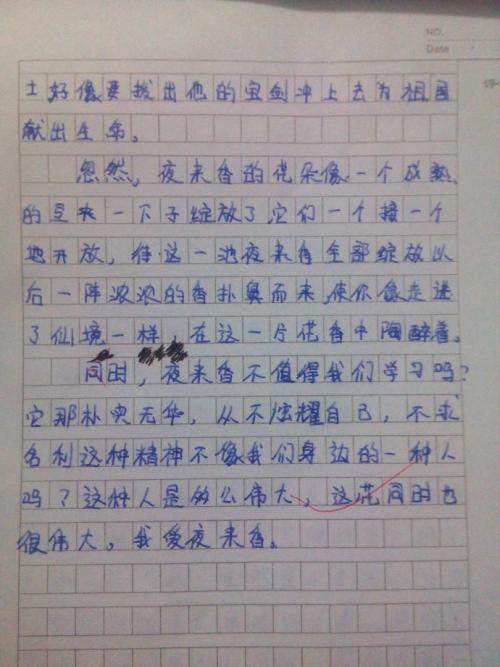 NO.
Date
土好像要拔出他的宝剑冲上去为祖国
献出生命。
忽然，夜来香的花朵像一个成熟
的豆荚一下子绽放了，它们一个接一个
地开放，待这一池夜来香全部绽放以
后一阵浓浓的香扑鼻而来，使你像走进
了仙境一样，在这一片花香中陶醉着。
同时，夜来香不值得我们学习吗？
它那朴实无华，从不炫耀自己，不求
名利这种精神不像我们身边的一种人
吗？这种人是多么伟大，这花同时也
很伟大。我爱夜来香。